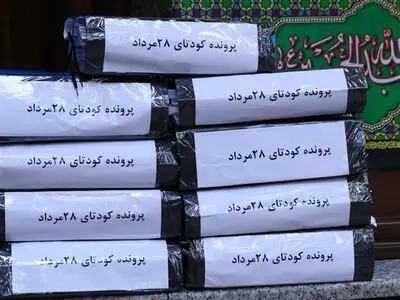 پرونده کودتای ۲۸مرداد
الحسین
پرونده کودتای ۲۸مرداد
پرونده کودتای ۲۸مرداد
پرونده کودتای ۲۸مرداد
پرونده کودتای ۲۸مرداد
پرونده کودتای ۲۸مرداد
پرونده کودتای ۲۸مرداد
پرونده کودتای ۲۸مرداد
پرونده کودتای ۲۸مرداد